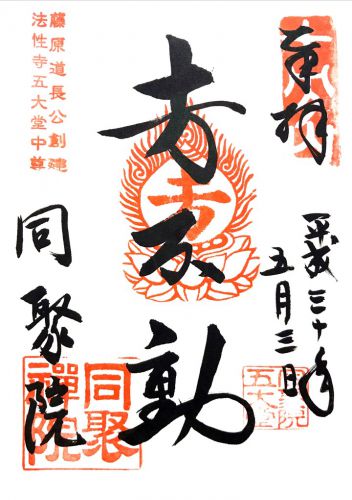 奉拝
平成三十年
五月三日
五大堂
不動
藤原道長公創建
法性寺五大堂中尊
同聚院
同聚
禪院